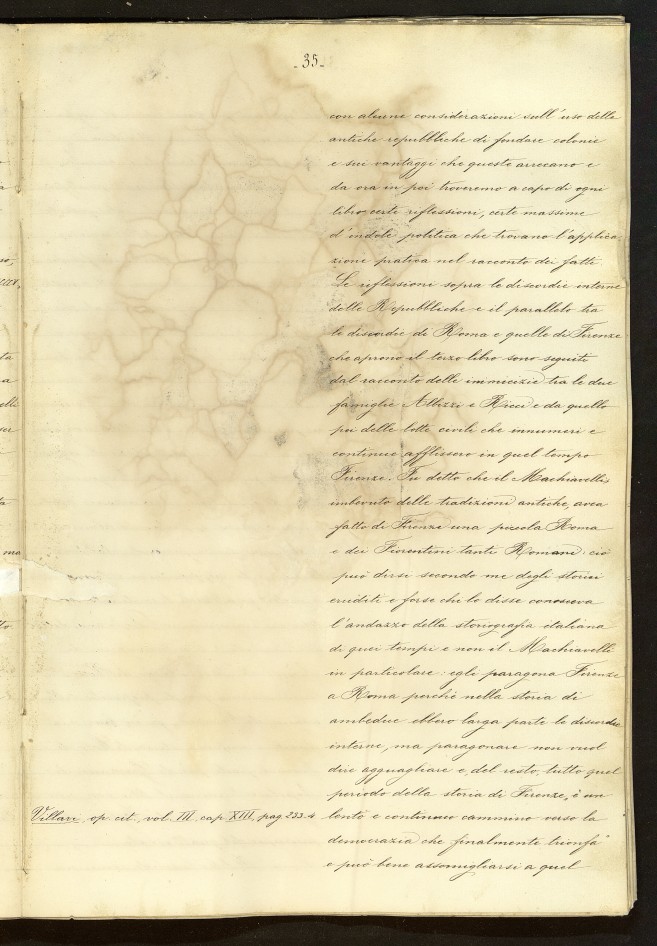 - 35 -
con alcune considerazioni sull'uso delle
antiche repubbliche di fondare colonie
e sui vantaggi che queste arrecano e
da ora in poi troveremo a capo di ogni
libro certe riflessioni, certe massime
d'indole politica che trovano l'applica-
zione pratica nel racconto dei fatti
Le riflessioni sopra le discordie interne
delle Repubbliche e il parallelo tra
le discordie di Roma e quelle di Firenze
che aprono il terzo libro sono seguiti
dal racconto delle inimicizie tra le due
famiglie Albizzi e Ricci e da quello
poi delle lotte civili che innumeri e
continue afflissero in quel tempo
Firenze. Fu detto che il Machiavelli,
imbevuto delle tradizioni antiche, avea
fatto di Firenze una piccola Roma
e dei Fiorentini tanti Romani: ciò
può dirsi secondo me degli storici
eruditi e forse chi lo disse conosceva
l'andazzo della storiografia italiana
di quei tempi e non il Machiavelli
in particolare: egli paragona Firenze
a Roma perchè nella storia di
ambedue ebbero larga parte le discordie
interne, ma paragonare non vuol
dire agguagliare e, del resto, tutto quel
periodo della storia di Firenze, è un
Villari, op. cit. vol. III. cap. XIII, pag. 233-4
lento e continuo cammino verso la
democrazia che finalmente trionfa
e può bene assomigliarsi a quel